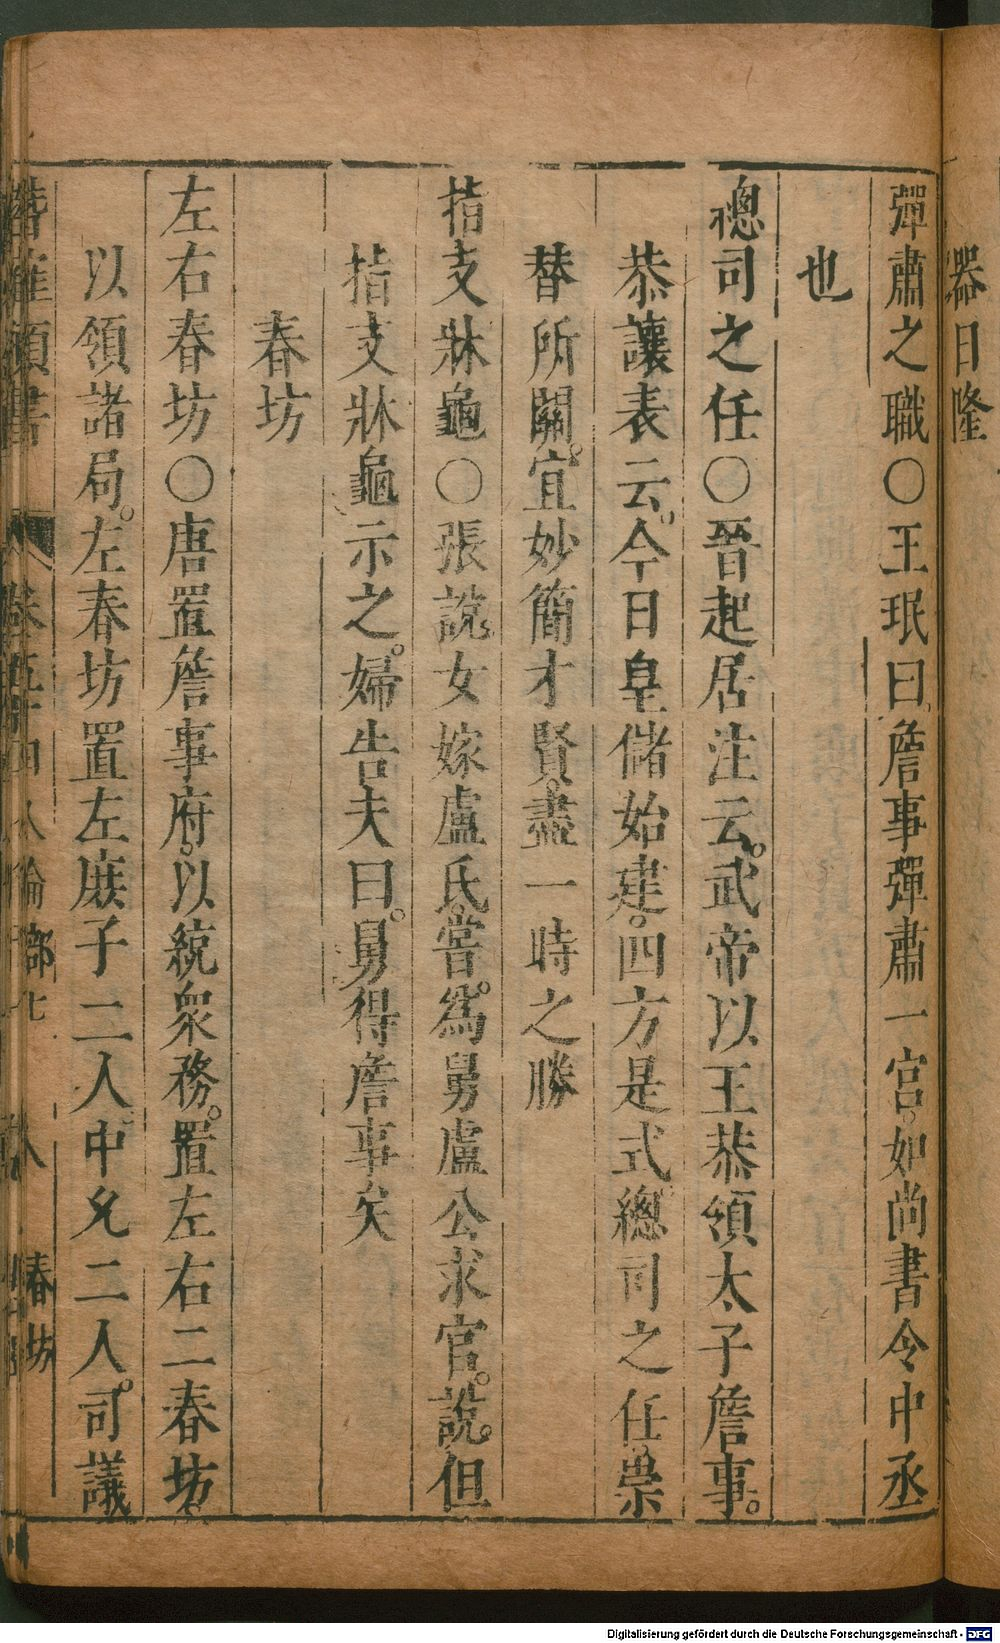 器日隆
彈肅之職○王珉曰詹事彈肅一宮如尚書令中丞
也
總司之任○晉起居注云武帝以王恭領太子詹事。
恭讓表云今日皇儲始建。四方是式總司之任崇
替所關。宜妙簡才賢。盡一時之勝
指支牀龜○張說女嫁盧氏。嘗。爲舅盧公求官。說。但
指支牀龜示之。婦告夫曰。舅得詹事矣
春坊
左右春坊○唐置詹事府。以統衆務。置左右二春坊
以領諸局。左春坊置左庶子二人中允二人。司議
卷五十四 人倫部七
春坊
Digitalisierung gefördert durch die Deutsche Forschungsgemeinschaft - DFG